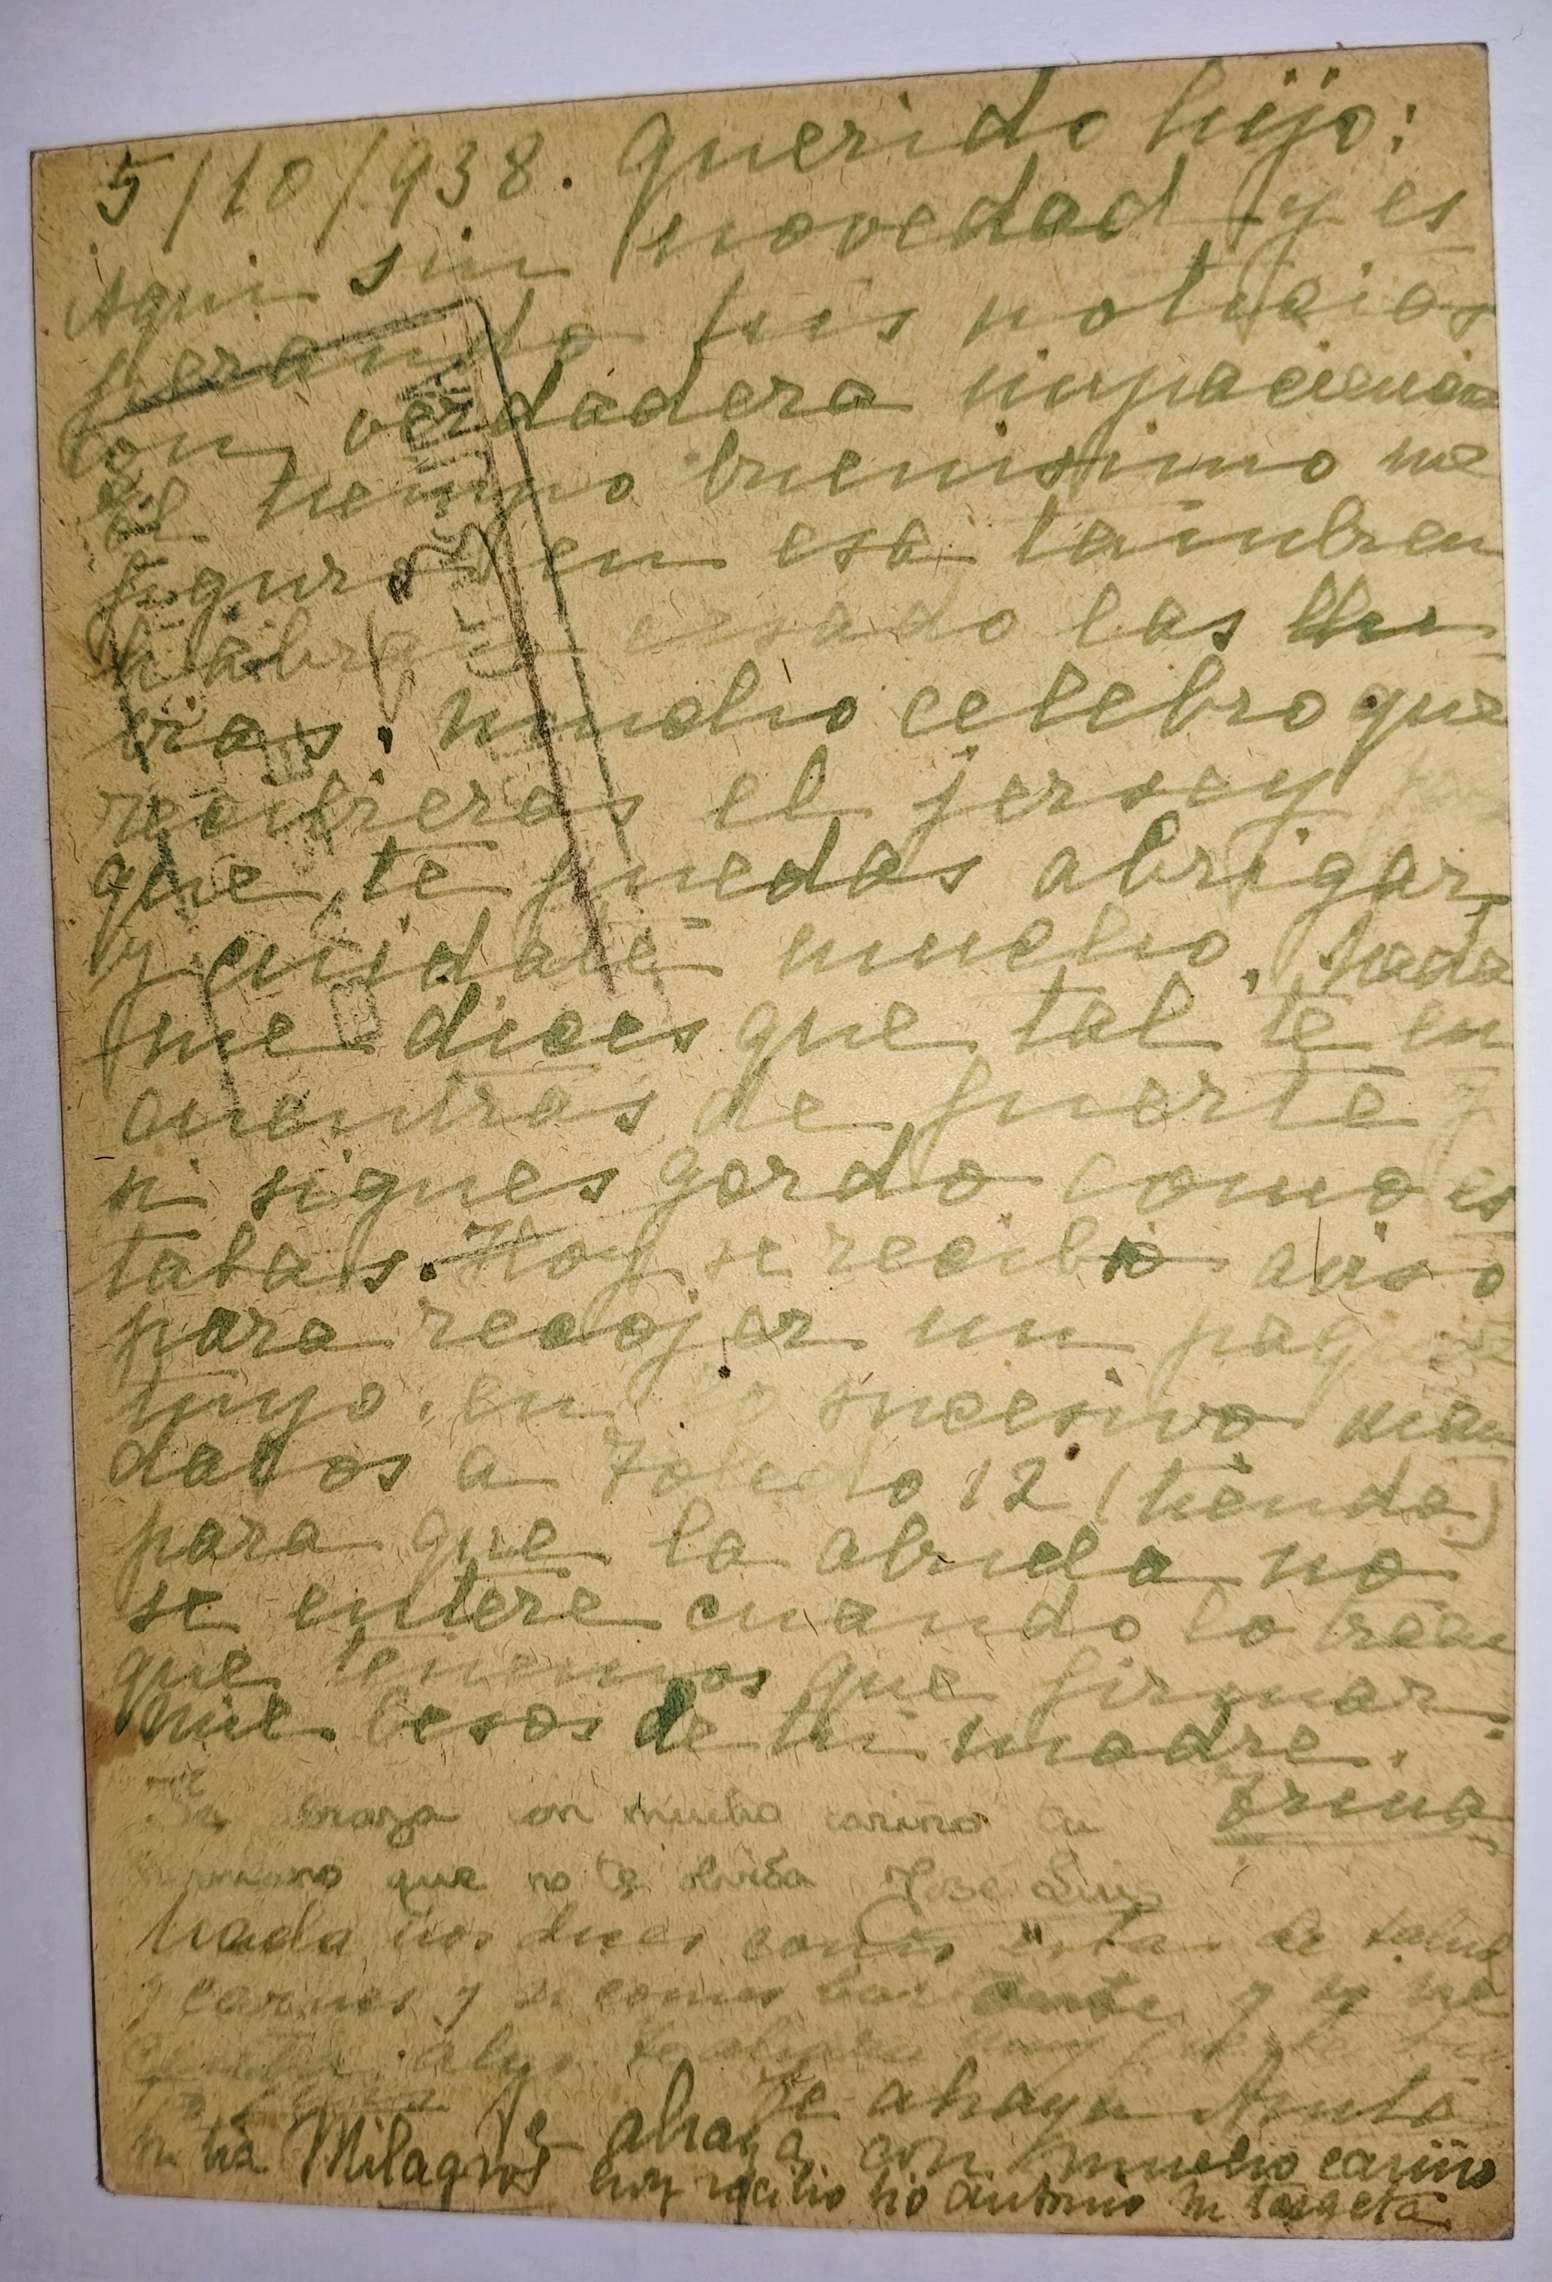 5/10/938. Querido hijo:
Aqui sin novedad y es
perando tus noticias
con verdadera impaciencia
El tiempo buenisimo me
figuro en esa tambien
habran cesado las llu
vias. mucho celebro que
recibieras el jersey
que te puedas abrigar,
y cuidate mucho. nada
me dices que tal te en
cuentras de fuerte y
si sigues gordo como es
tabas. Hoy se recibio aviso
para recojer un paquete
tuyo. en lo sucesivo man
dalos a Toledo 12 (tienda)
para que la abuela no
se entere cuando lo trean
que tenemos que firmar.
mil besos de tu madre.
Trina
Te abraza con mucho cariño tu
hermano que no te olvida José Luis
Nada nos dices como estas de salud
y carnes y si comes bastante y si me
algo
Te abraza
tu tia Milagros Te abraza con mucho cariño
hoy recibio tio Antonio tu tarjeta